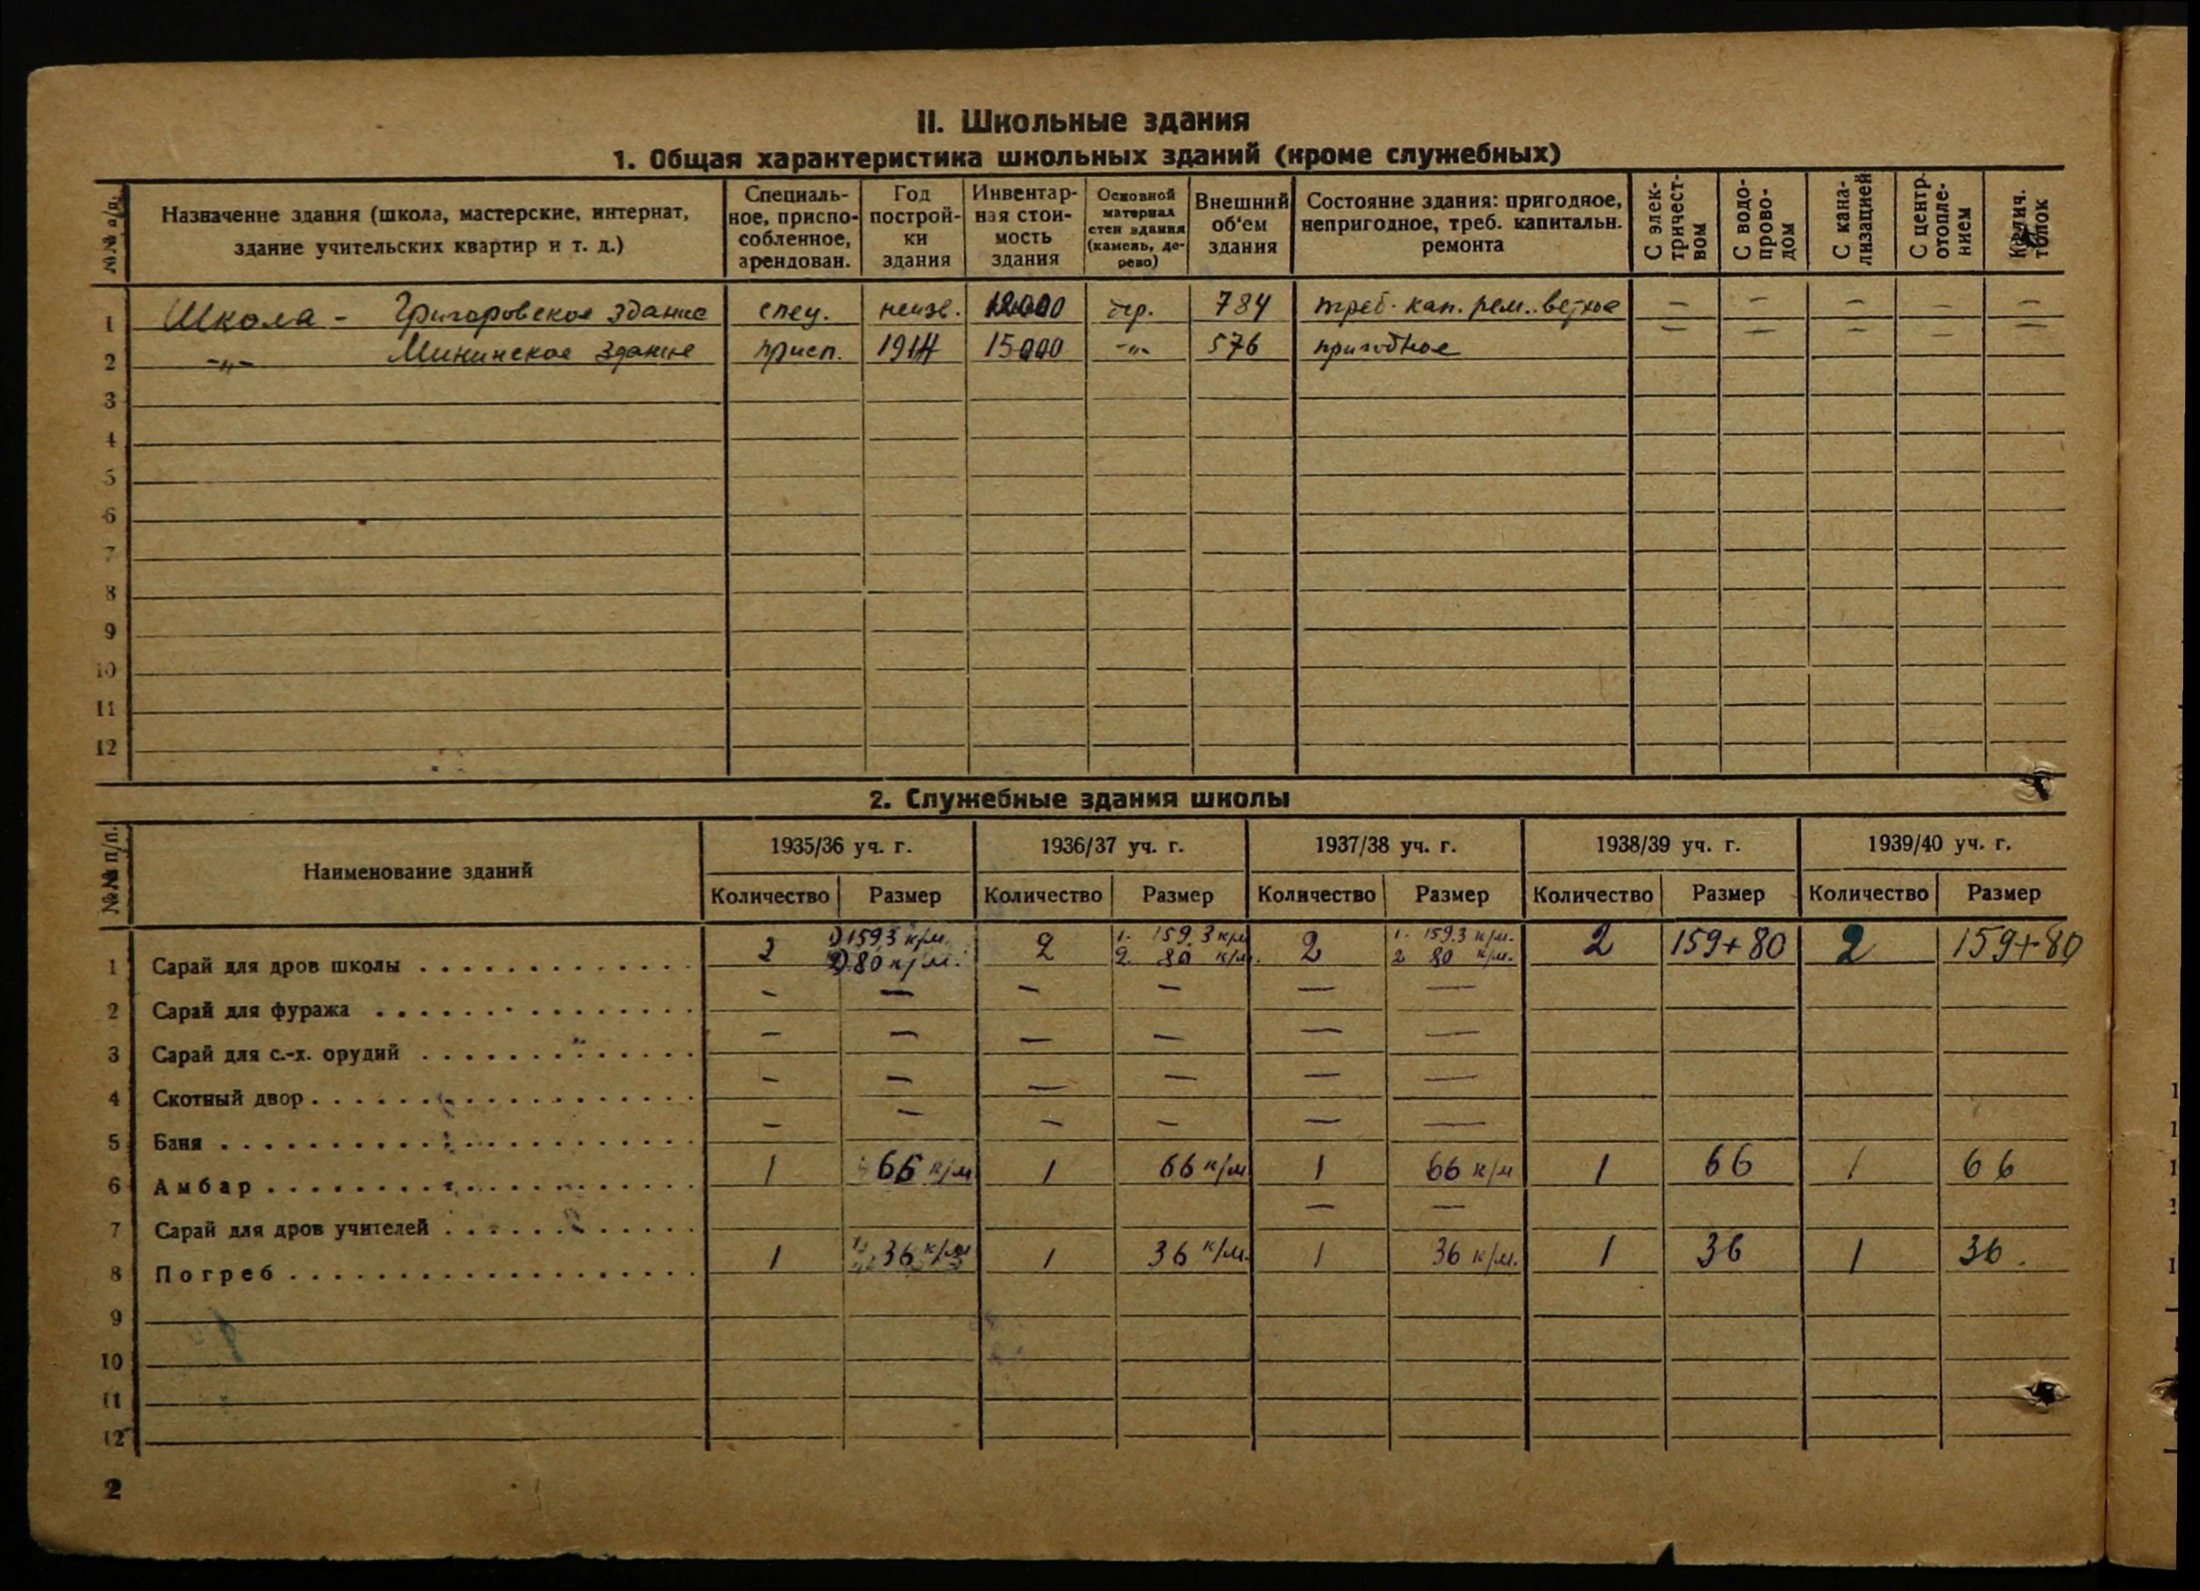 II. Школьные здания
1. Общая характеристика школьных зданий (кроме служебных)
№№ п/п. Назначение здания (школа, мастерские, интернат, здание учительских квартир и т. д.) Специальное, приспособленное, арендован. Год постройки здания Инвентарная стоимость здания Основной материал стен здания (камень, дерево) Внешний об'ем здания Состояние здания: пригодное, непригодное, треб. капитальн. ремонта С электричеством С водопроводом С канализацией С центр. отоплением Колич. топок
1 Школа - Григоровское здание спец. неизв. 12000 др. 784 треб. кап. рем. ветхое — — — — —
2 -„- Мининское здание присп. 1914 15000 -„- 576 пригодное — — — — —
3
4
5
6
7
8
9
10
11
12
2. Служебные здания школы
№№ п/п. Наименование зданий 1935/36 уч. г. 1936/37 уч. г. 1937/38 уч. г. 1938/39 уч. г. 1939/40 уч. г.
Количество Размер Количество Размер Количество Размер Количество Размер Количество Размер
1 Сарай для дров школы 2 1) 159,3 к/м. 2) 80 к/м. 2 1. 159.3 к/м 2. 80 к/м. 2 1. 159.3 к/м. 2 80 к/м. 2 159+80 2 159+80
2 Сарай для фуража — — — — — —
3 Сарай для с.-х. орудий — — — — — —
4 Скотный двор — — — — — —
5 Баня — — — — — —
6 Амбар 1 66 к/м 1 66 к/м 1 66 к/м 1 66 1 66
7 Сарай для дров учителей — —
8 Погреб 1 36 к/м 1 36 к/м. 1 36 к/м. 1 36 1 36.
9
10
11
12
2